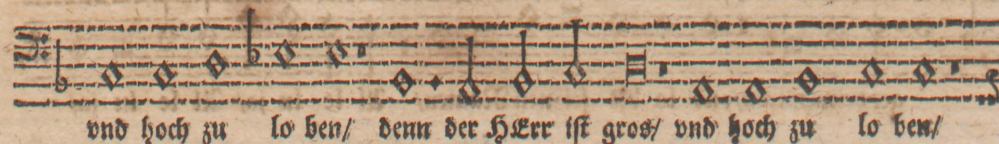 vnd hoch zu lo ben/ denn der HErr ist gros/ vnd hoch zu lo ben/